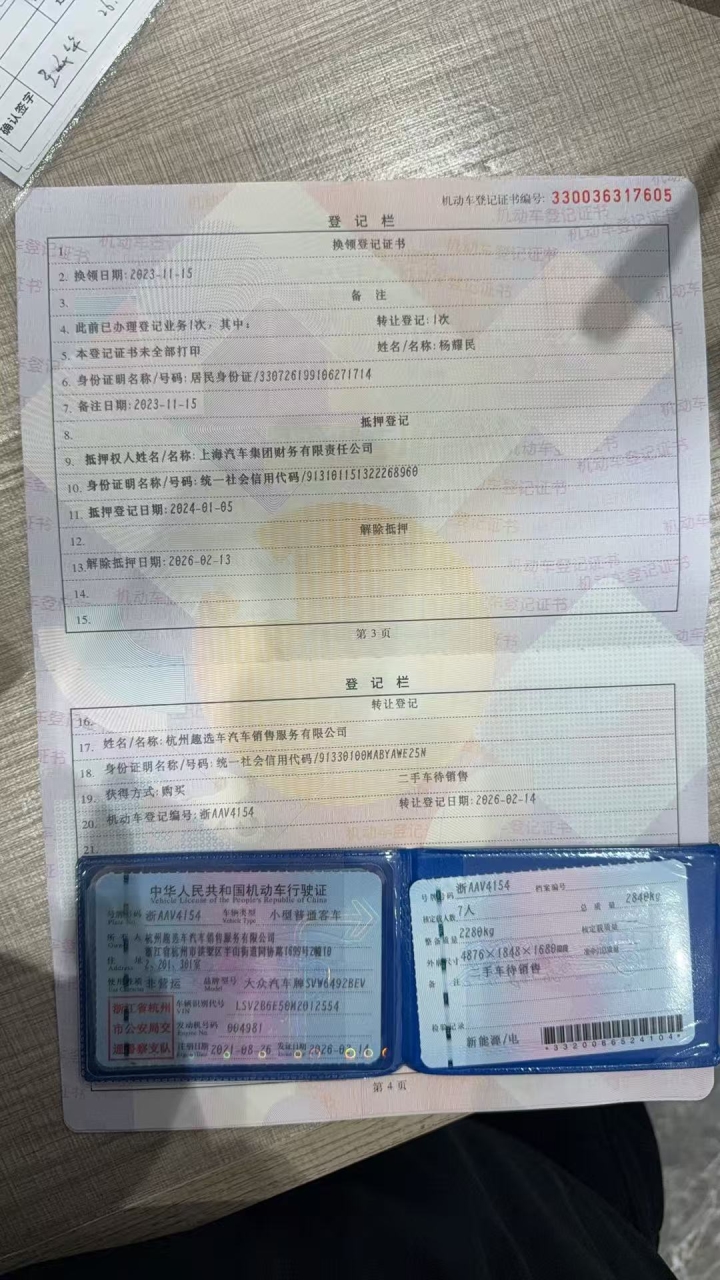 确认签字
机动车登记证书编号: 330036317605
登记栏
1. 换领登记证书
2. 换领日期:2023-11-15
3. 备 注
4. 此前已办理登记业务1次，其中: 转让登记:1次
5. 本登记证书未全部打印 姓名/名称:杨耀民
6. 身份证明名称/号码:居民身份证/330726199106271714
7. 备注日期:2023-11-15
8. 抵押登记
9. 抵押权人姓名/名称:上海汽车集团财务有限责任公司
10. 身份证明名称/号码:统一社会信用代码/913101151322268960
11. 抵押登记日期:2024-01-05
12. 解除抵押
13. 解除抵押日期:2026-02-13
14.
15.
第3页
登记栏
16. 转让登记
17. 姓名/名称:杭州趣选车汽车销售服务有限公司
18. 身份证明名称/号码:统一社会信用代码/91330100MABYAWE25N
19. 获得方式:购买 二手车待销售
20. 机动车登记编号:浙AAV4154 转让登记日期:2026-02-14
21.
中华人民共和国机动车行驶证
Vehicle License of the People's Republic of China
号牌号码 浙AAV4154 车辆类型 小型普通客车
Plate No. Vehicle Type
所有人 杭州趣选车汽车销售服务有限公司
住址
Address
使用性质 非营运 品牌型号 大众汽车牌SVW6492BEV
Use Character Model
浙江省杭州
市公安局交
通警察支队
车辆识别代号 LSV2B6E50M2012554
VIN
发动机号码 004981
Engine No.
注册日期 2021-08-26 发证日期 2026-02-14
号牌号码 浙AAV4154 档案编号
核定载人数 7人 总质量 2840kg
整备质量 2280kg 核定载质量
外廓尺寸 4876×1848×1680mm 准牵引总质量
备注 二手车待销售
检验记录
新能源/电
*3320086524104*
第4页